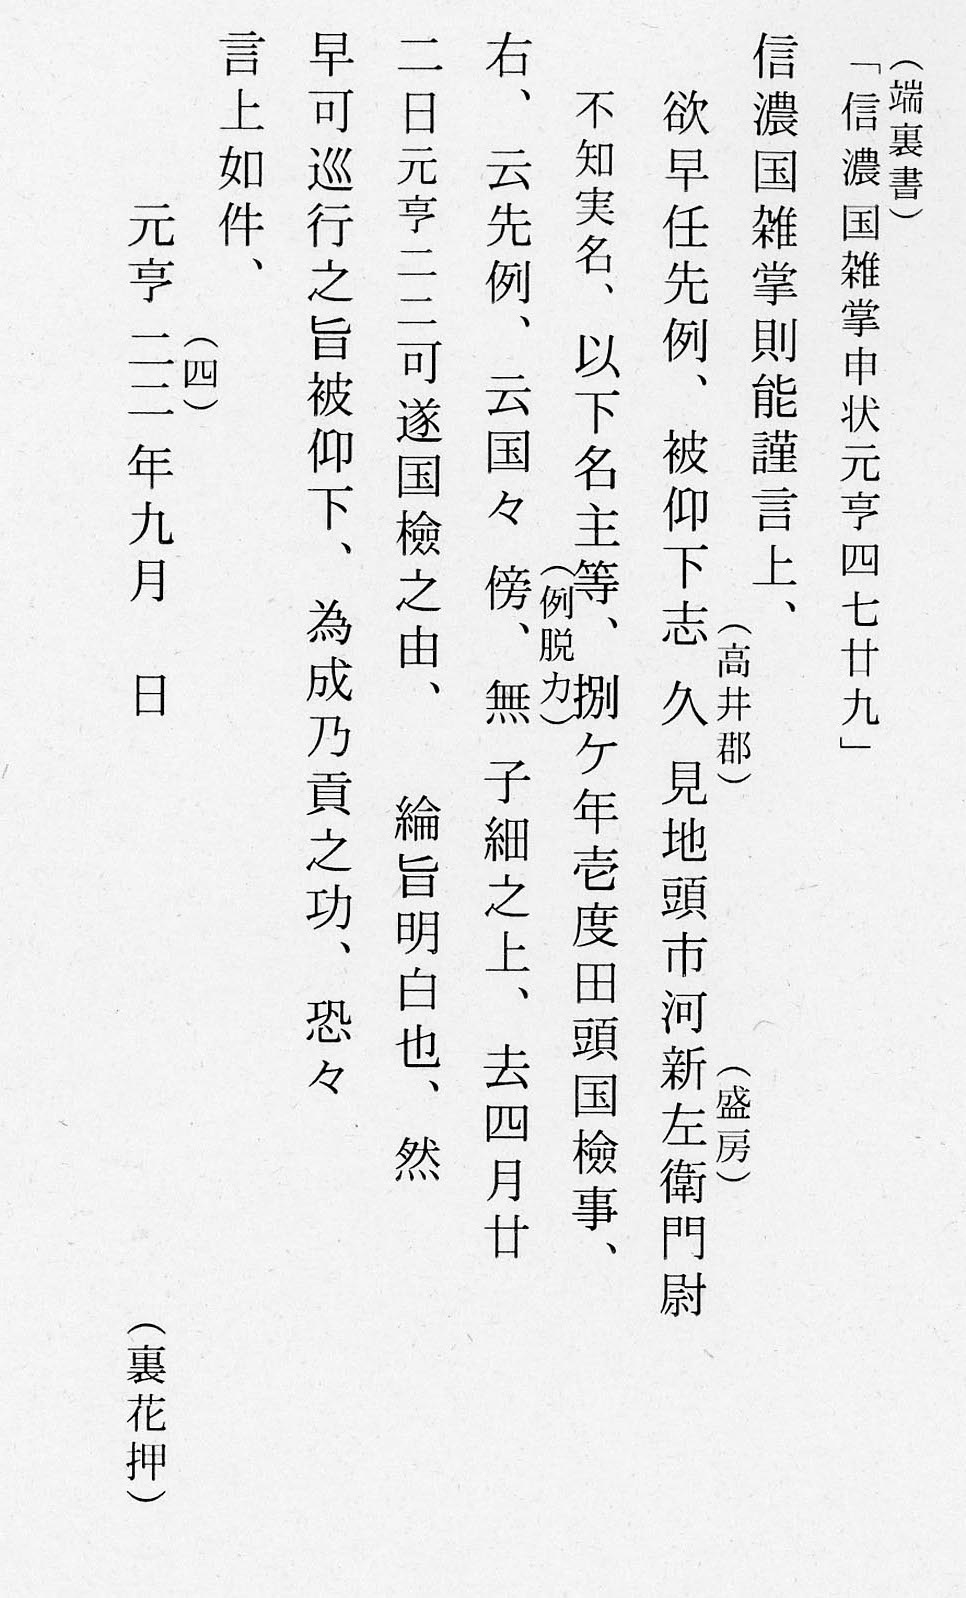 （端裏書）
「信濃国雑掌申状元亨四七廿九」
信濃国雑掌則能謹言上、
（高井郡）
（盛房）
欲早任先例、被仰下志久見地頭市河新左衛門尉
不知実名、以下名主等、捌ケ年壱度田頭国檢事、
（例脱カ）
右、云先例、云国々傍、無子細之上、去四月廿
二日元亨二二可遂国檢之由、　綸旨明白也、然
早可巡行之旨被仰下、為成乃貢之功、恐々
言上如件、
（四）
元亨二二年九月　日
（裏花押）